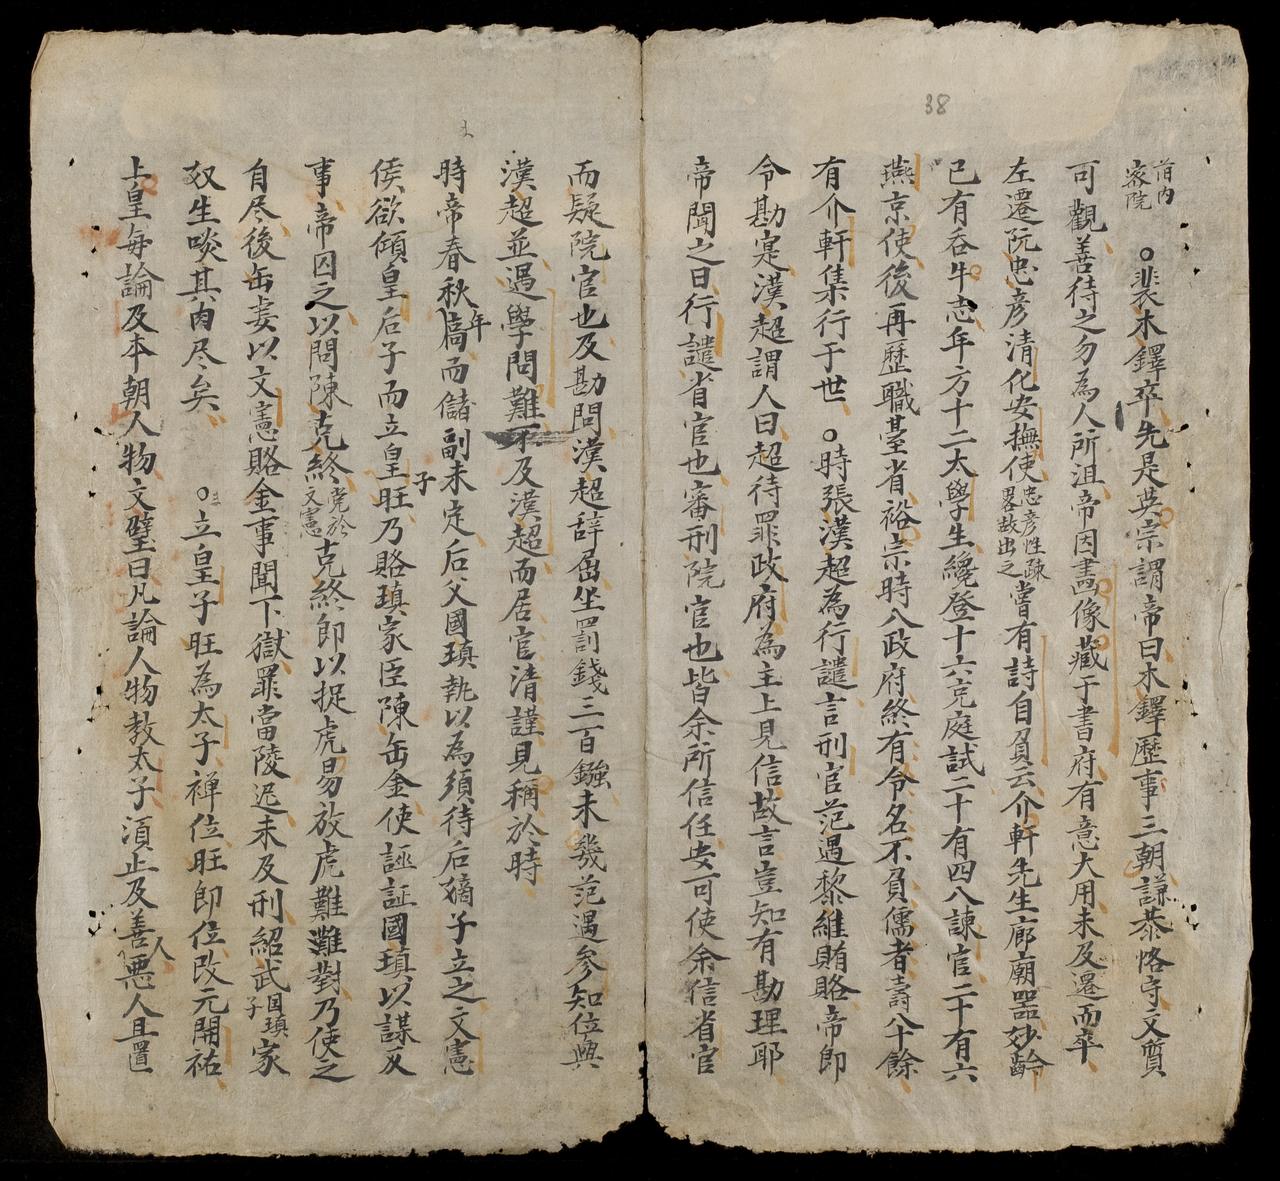 38
首内密院 ○裴木鐸卒先是英宗謂帝曰木鐸歷事三朝謙恭恪守文質
可觀善待之勿為人所沮帝因畫像藏于書府有意大用未及遷而卒
左遷阮忠彦清化安撫使忠彦性疎畧故出之嘗有詩自負云介軒先生廊廟噐妙齡
已有吞牛志年方十二太學生纔登十六充庭試二十有四入諫官二十有六
燕京使後再歷職䑓省裕宗時入政府終有令名不負儒者壽八十餘
有介軒集行于世 ○時張漢超為行譴言刑官范遇黎維賄賂帝即
令勘寔漢超謂人曰超待罪政府為主上見信故言豈知有勘理耶
帝聞之曰行譴省官也審刑院官也皆余所信任安可使余信省官
而疑院官也及勘問漢超辞屈坐罰錢三百鏹未幾范遇参知位與
漢超並遇學問難不及漢超而居官清謹見稱於時
時帝春秋年髙而儲副未定后父國瑱執以為須待后嫡子立之文憲
侯欲傾皇后子而立皇子旺乃賂瑱家臣陳缶金使誣証國瑱以謀反
事帝囚之以問陳克終党於文憲克終即以捉虎易放虎難對乃使之
自尽後缶妻以文憲賂金事聞下獄罪當陵遲未及刑紹武国瑱子家
奴生啖其肉尽矣 ○立皇子旺為太子禅位旺即位改元開祐
上皇每論及本朝人物文璧曰凡論人物教太子湏止及善人悪人且置